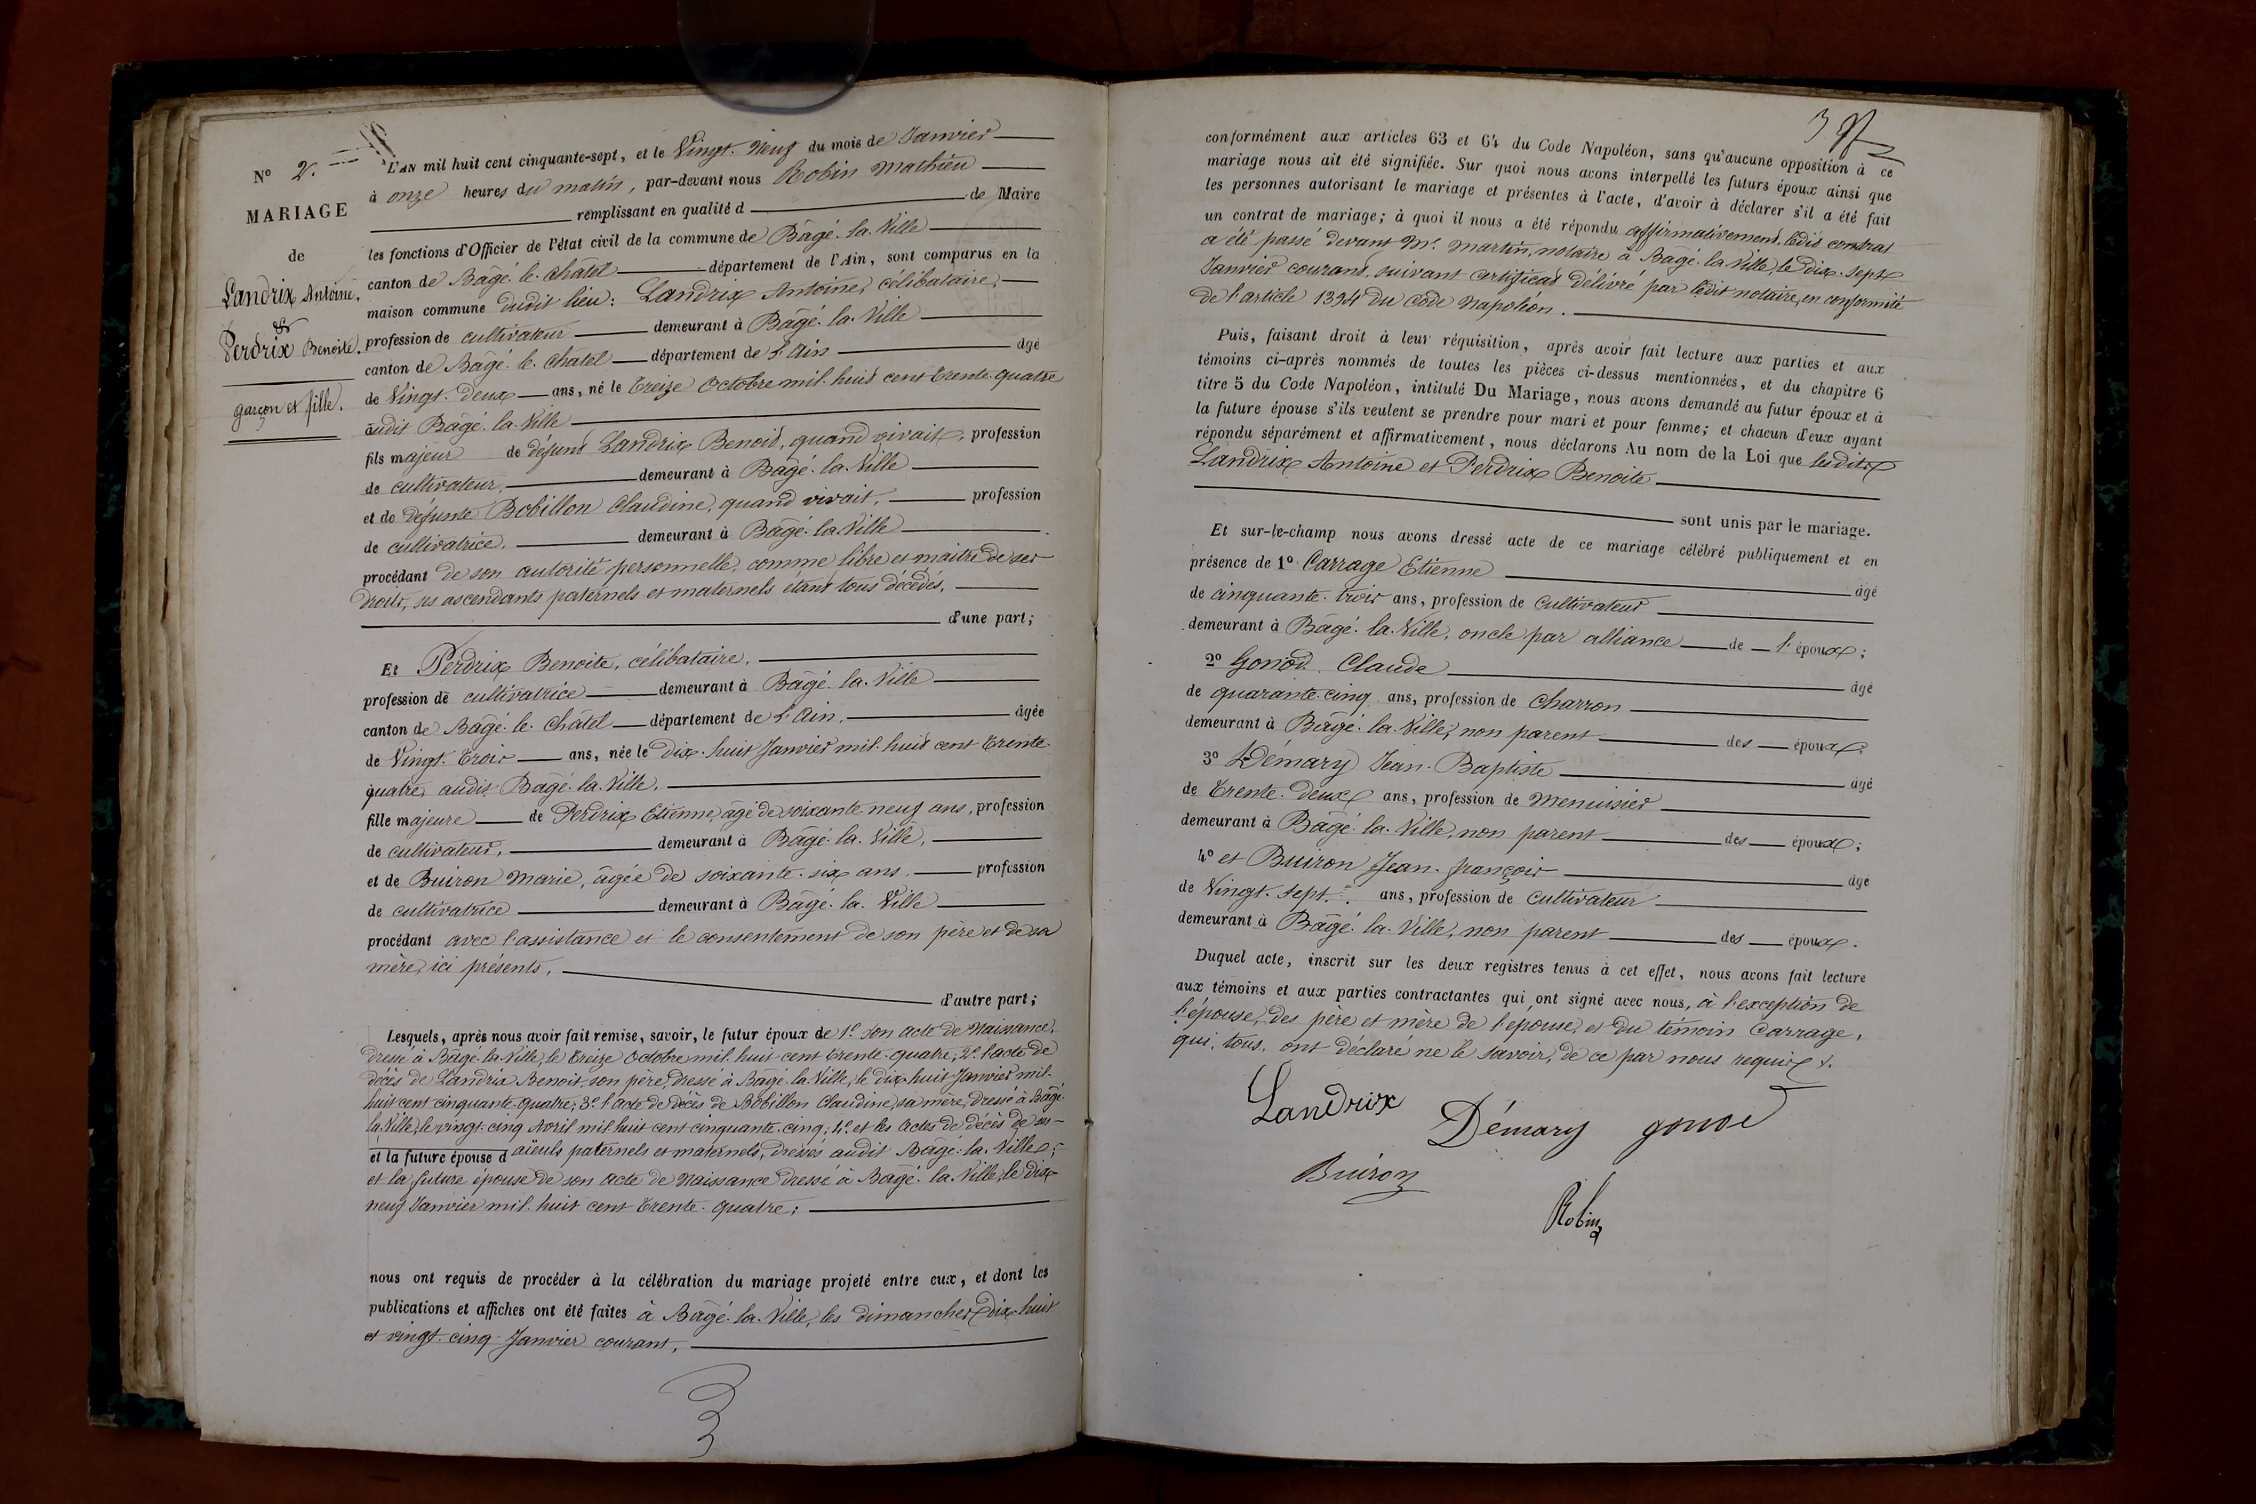 N° 2.
MARIAGE
de
Landrix Antoine,
&
Perdrix Benoite.
garçon et fille.
L'AN mil huit cent cinquante-sept, et le Vingt-Neuf du mois de Janvier
à onze heures du matin, par-devant nous Robin Mathieu
de Maire
remplissant en qualité d
les fonctions d'Officier de l'état civil de la commune de Bâgé-la-Ville
canton de Bâgé-le-Châtel département de l'Ain, sont comparus en la
maison commune dudit lieu: Landrix Antoine, célibataire,
profession de cultivateur demeurant à Bâgé-la-Ville
canton de Bâgé-le-Chatel département de l'Ain âgé
de Vingt-deux ans, né le treize Octobre mil-huit cent trente-quatre
audit Bâgé-la-Ville
fils majeur de défunt Landrix Benoit, quand vivait, profession
de cultivateur, demeurant à Bâgé-la-Ville
et de défunte Bobillon Claudine, quand vivait, profession
de cultivatrice, demeurant à Bâgé-la-Ville
procédant de son autorité personnelle, comme libre et maitre de ses
droits, ses ascendants paternels et maternels étant tous décédés,
d'une part;
Et Perdrix Benoite, célibataire,
profession de cultivatrice demeurant à Bâgé-la-Ville
canton de Bâgé-le-Châtel département de l'Ain, âgée
de Vingt-trois ans, née le dix-huit Janvier mil-huit cent trente-
quatre, audit Bâgé-la-Ville,
fille majeure de Perdrix Etienne, âgé de soixante neuf ans, profession
de cultivateur, demeurant à Bâgé-la-Ville,
et de Buiron Marie, âgée de soixante-six ans, profession
de cultivatrice demeurant à Bâgé-la-Ville
procédant avec l'assistance et le consentement de son père et de sa
mère, ici présents,
d'autre part;
Lesquels, après nous avoir fait remise, savoir, le futur époux de 1° son acte de Naissance,
dressé à Bâgé-la-Ville, le treize Octobre mil-huit cent trente-quatre; 2° l'acte de
décès de Landrix Benoit, son père, dressé à Bâgé-la-Ville, le dix-huit Janvier mil-
huit cent cinquante-quatre; 3° l'acte de décès de Bobillon Claudine, sa mère, dressé à Bâgé-
la-Ville, le vingt-cinq Avril mil huit cent cinquante-cinq; 4° et les actes de décès de ses
et la future épouse d aïeuls paternels et maternels, dressés audit Bâgé-la-Ville;
et la future épouse de son acte de Naissance dressé à Bâgé-la-Ville, le dix-
neuf Janvier mil-huit cent trente-quatre;
nous ont requis de procéder à la célébration du mariage projeté entre eux, et dont les
publications et affiches ont été faites à Bâgé-la-Ville, les dimanches dix-huit
et vingt-cinq Janvier courant,
3
conformément aux articles 63 et 64 du Code Napoléon, sans qu'aucune opposition à ce
mariage nous ait été signifiée. Sur quoi nous avons interpellé les futurs époux ainsi que
les personnes autorisant le mariage et présentes à l'acte, d'avoir à déclarer s'il a été fait
un contrat de mariage; à quoi il nous a été répondu affirmativement, ledit contrat
a été passé devant Me. Martin, notaire à Bâgé-la-Ville, le dix-sept
Janvier courant, suivant certificat délivré par ledit notaire, en conformité
de l'article 1394 du Code Napoléon.
Puis, faisant droit à leur réquisition, après avoir fait lecture aux parties et aux
témoins ci-après nommés de toutes les pièces ci-dessus mentionnées, et du chapitre 6
titre 5 du Code Napoléon, intitulé Du Mariage, nous avons demandé au futur époux et à
la future épouse s'ils veulent se prendre pour mari et pour femme; et chacun d'eux ayant
répondu séparément et affirmativement, nous déclarons Au nom de la Loi que lesdits
Landrix Antoine et Perdrix Benoite
sont unis par le mariage.
Et sur-le-champ nous avons dressé acte de ce mariage célébré publiquement et en
présence de 1° Carrage Etienne âgé
de cinquante-trois ans, profession de Cultivateur
demeurant à Bâgé-la-Ville, oncle par alliance de l'époux;
2° Gonod Claude âgé
de quarante-cinq ans, profession de charron
demeurant à Bâgé-la-Ville, non parent des époux;
3° Démary Jean-Baptiste âgé
de trente-deux ans, profession de menuisier
demeurant à Bâgé-la-Ville, non parent des époux;
4° et Buiron Jean-françois âgé
de Vingt-sept ans, profession de Cultivateur
demeurant à Bâgé-la-Ville, non parent des époux.
Duquel acte, inscrit sur les deux registres tenus à cet effet, nous avons fait lecture
aux témoins et aux parties contractantes qui ont signé avec nous, à l'exception de
l'épouse, des père et mère de l'épouse, et du témoin Carrage,
qui, tous, ont déclaré ne le savoir, de ce par nous requis.
Landrix Démary gonod
Buiron
Robin